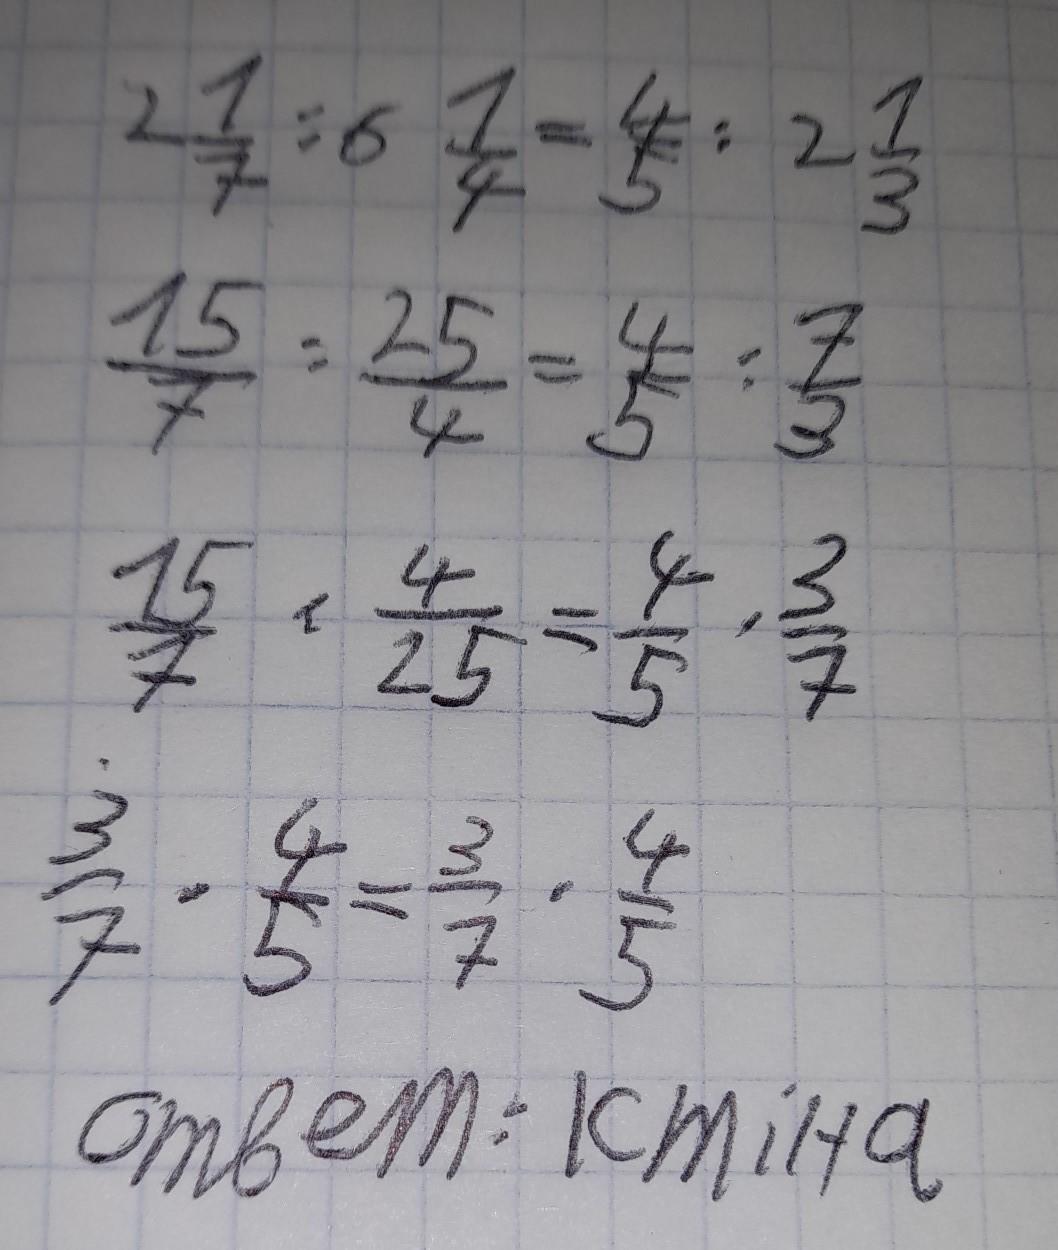 2 1/7 : 6 1/4 = 4/5 : 2 1/3
15/7 : 25/4 = 4/5 : 7/3
15/7 · 4/25 = 4/5 · 3/7
3/7 · 4/5 = 3/7 · 4/5
ответ: кmiна